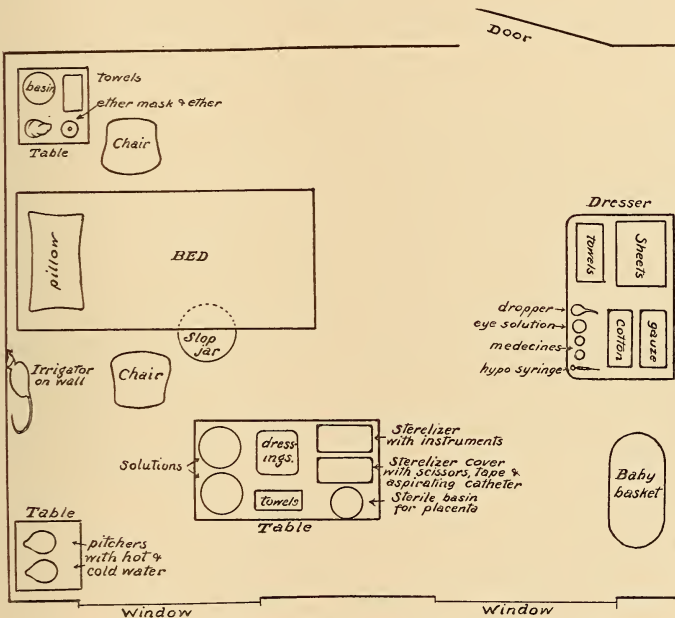 Door
basin
Towels
ether mask & ether
Table
Chair
pillow
BED
Slop
jar
Dresser
Towels
Sheets
dropper
eye solution
medecines
hypo syringe
Cotton
gauze
Irrigator
on wall
Chair
Solutions
dress-
ings.
towels
Sterelizer
with instruments
Sterelizer cover
with scissors, Tape &
aspirating catheter
Sterile basin
for placenta
Table
Baby
basket
Table
pitchers
with hot &
cold water
Window
Window